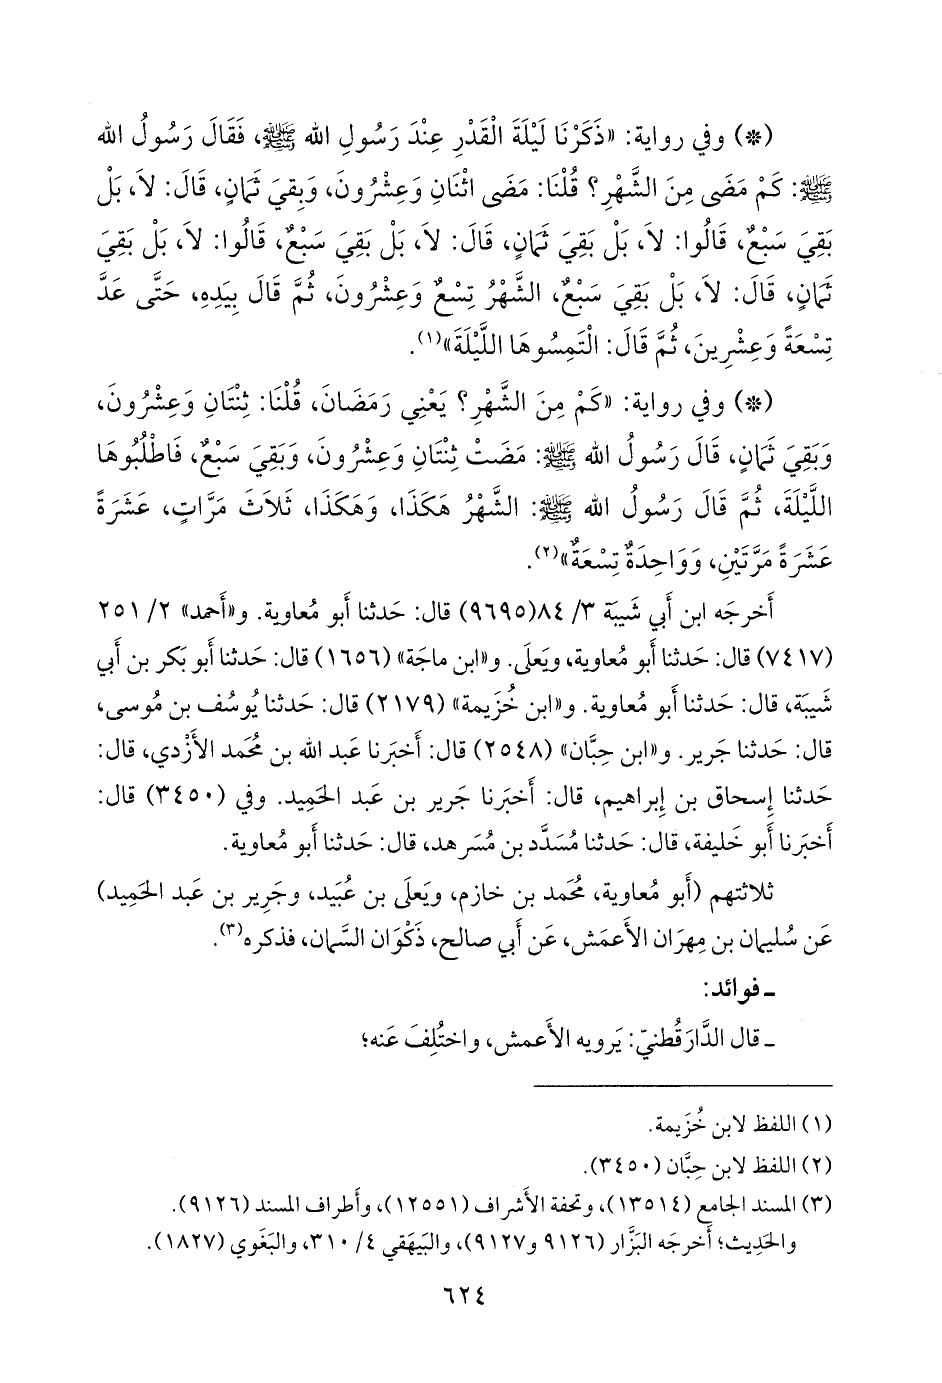 (*) وفي رواية: «ذَكَرْنَا لَيْلَةَ الْقَدْرِ عِنْدَ رَسُولِ الله ﷺ، فَقَالَ رَسُولُ الله
ﷺ: كَمْ مَضَى مِنَ الشَّهْرِ؟ قُلْنَا: مَضَى اثْنَانِ وَعِشْرُونَ، وَبَقِيَ ثَمَانٍ، قَالَ: لاَ، بَلْ
بَقِيَ سَبْعٌ، قَالُوا: لاَ، بَلْ بَقِيَ ثَمَانٍ، قَالَ: لاَ، بَلْ بَقِيَ سَبْعٌ، قَالُوا: لاَ، بَلْ بَقِيَ
ثَمَانٍ، قَالَ: لاَ، بَلْ بَقِيَ سَبْعٌ، الشَّهْرُ تِسْعٌ وَعِشْرُونَ، ثُمَّ قَالَ بِيَدِهِ، حَتَّى عَدَّ
تِسْعَةً وَعِشْرِينَ، ثُمَّ قَالَ: الْتَمِسُوهَا اللَّيْلَةَ»(١).
(*) وفي رواية: «كَمْ مِنَ الشَّهْرِ؟ يَعْنِي رَمَضَانَ، قُلْنَا: ثِنْتَانِ وَعِشْرُونَ،
وَبَقِيَ ثَمَانٍ، قَالَ رَسُولُ الله ﷺ: مَضَتْ ثِنْتَانِ وَعِشْرُونَ، وَبَقِيَ سَبْعٌ، فَاطْلُبُوهَا
اللَّيْلَةَ، ثُمَّ قَالَ رَسُولُ الله ﷺ: الشَّهْرُ هَكَذَا، وَهَكَذَا، ثَلَاثَ مَرَّاتٍ، عَشَرَةً
عَشَرَةً مَرَّتَيْنِ، وَوَاحِدَةٌ تِسْعَةٌ»(٢).
أَخرجَه ابن أَبي شَيبَة ٣/ ٨٤(٩٦٩٥) قال: حَدثنا أَبو مُعاوية. و«أَحمد» ٢/ ٢٥١
(٧٤١٧) قال: حَدثنا أَبو مُعاوية، ويَعلَى. و«ابن ماجَة» (١٦٥٦) قال: حَدثنا أَبو بَكر بن أَبي
شَيبَة، قال: حَدثنا أَبو مُعاوية. و«ابن خُزَيمة» (٢١٧٩) قال: حَدثنا يُوسُف بن مُوسى،
قال: حَدثنا جَرير. و«ابن حِبَّان» (٢٥٤٨) قال: أَخبَرنا عَبد الله بن مُحَمد الأَزْدي، قال:
حَدثنا إِسحاق بن إِبراهيم، قال: أَخبَرنا جَرير بن عَبد الحَميد. وفي (٣٤٥٠) قال:
أَخبَرنا أَبو خَليفة، قال: حَدثنا مُسَدَّد بن مُسَرهد، قال: حَدثنا أَبو مُعاوية.
ثلاثتهم (أَبو مُعاوية، مُحَمد بن خازم، ويَعلَى بن عُبَيد، وجَرِير بن عَبد الحَمِيد)
عَن سُليمان بن مِهرَان الأَعمَش، عَن أَبي صالح، ذَكْوَان السَّمان، فذكره(٣).
ـ فوائد:
ـ قال الدَّارَقُطنيّ: يَرويه الأَعمش، واختُلِفَ عَنه؛
(١) اللفظ لابن خُزَيمة.
(٢) اللفظ لابن حِبَّان (٣٤٥٠).
(٣) المسند الجامع (١٣٥١٤)، وتحفة الأَشراف (١٢٥٥١)، وأَطراف المسند (٩١٢٦).
والحَدِيث؛ أَخرجَه البَزَّار (٩١٢٦ و٩١٢٧)، والبَيهَقي ٤/ ٣١٠، والبَغَوي (١٨٢٧).
٦٢٤